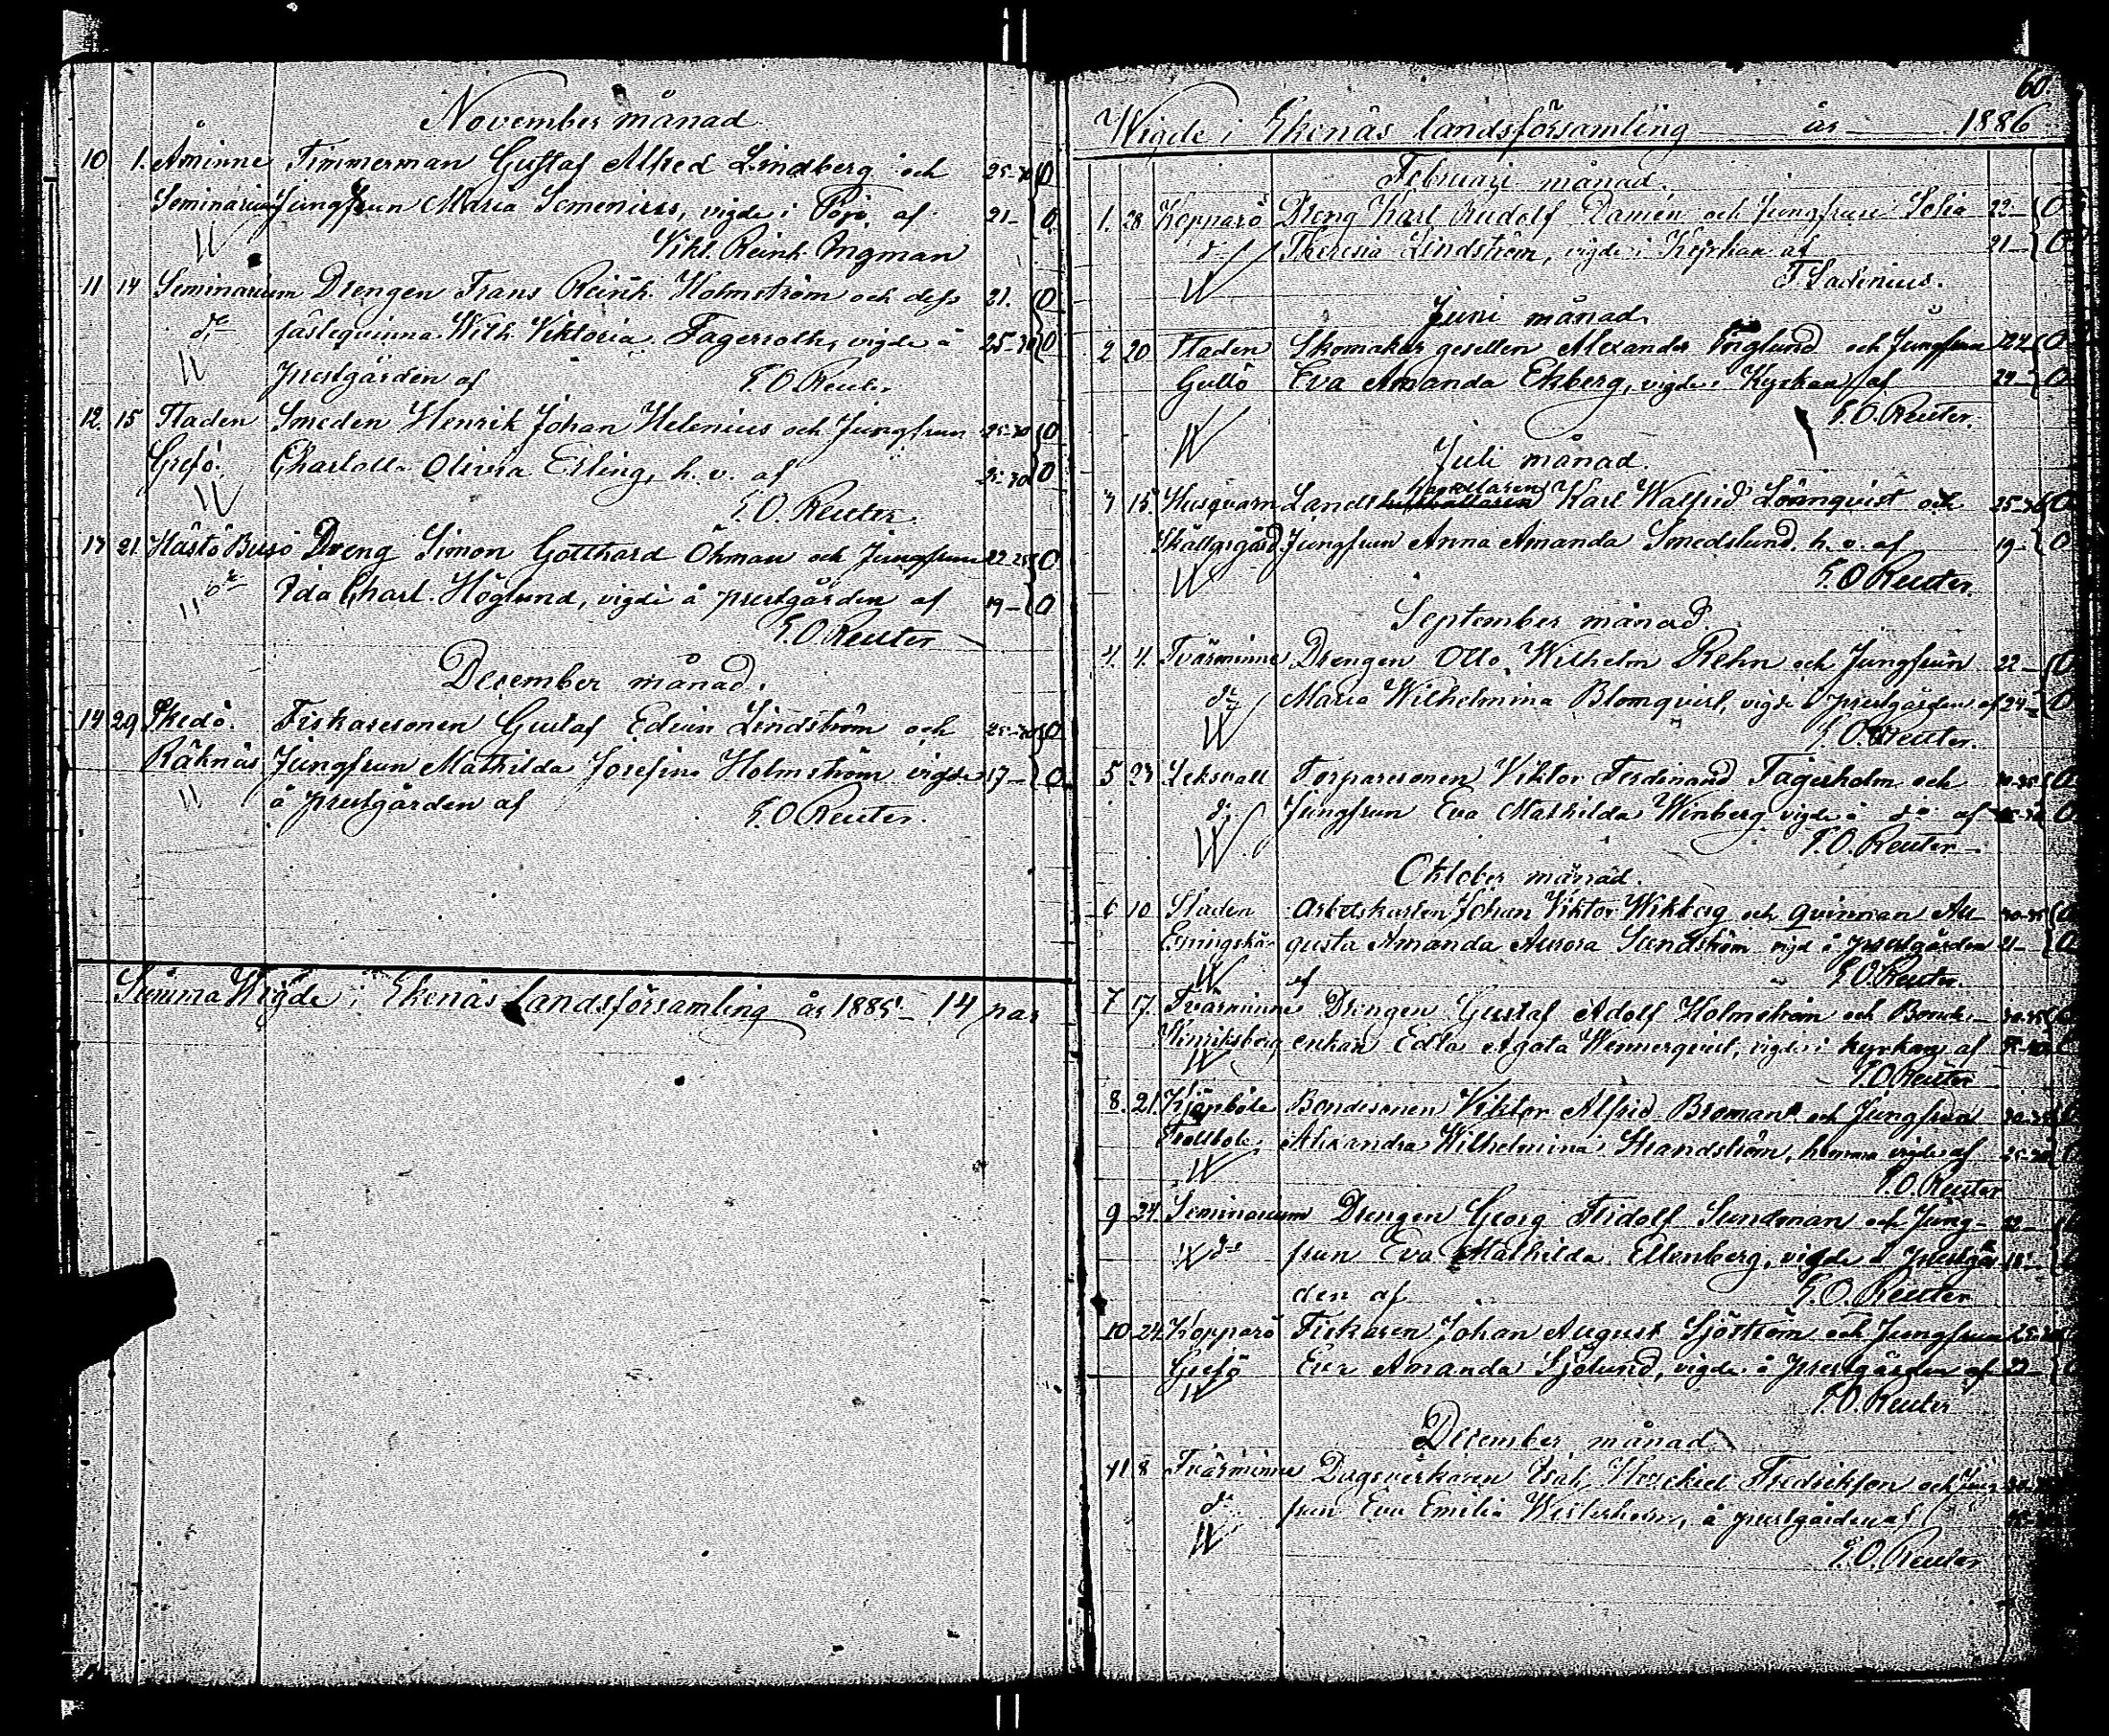 November månad
10 1. Åminne Timmerman Gustaf Alfred Lindberg och 25-30 0
Seminarium Jungfrun Maria Semenius, vigde i Pojo af 21- 0
Vikt. Reinh. Ingman
11 14 Seminarium Drengen Frans Reinh. Holmström och dess 21. 0
do fästeqvinna Wilh. Viktoria Fagerroth, vigde å 25-30 0
prestgården af E.O. Reuter
12. 15 Staden Smeden Henrik Johan Helenius och Jungfrun 25-30 0
Grefö. Charlotta Olivia Erling, h. v. af 25-30 0
E.O. Reuter.
13 21. Hästö Busö Dreng Simon Gotthard Öhman och Jungfrun 22 0
do Ida Charl. Höglund, vigde å prestgården af 19- 0
E.O. Reuter
December månad.
14 29 Skedö. Fiskaresonen Gustaf Edvin Lindström och 25-30 0
Räknäs Jungfrun Mathilda Josefina Holmström vigde 17- 0
å prestgården af E.O. Reuter.
Summa Wigde i Ekenäs landsförsamling år 1885 - 14 par
60.
Wigde i Ekenäs landsförsamling år 1886
Februari månad.
1. 28 Kopparö Dreng Karl Rudolf Damén och Jungfrun Sofia 22- 0
do Theresia Lindström, vigde i Kyrkan af 21- 0
F. Sadenius.
Juni månad.
2 20 Staden Skomakar gesellen Alexander Englund och Jungfrun 24 0
Gullö Eva Amanda Ekberg, vigde i Kyrkan af 24- 0
E.O. Reuter.
Juli månad.
3 15. Husqvarn Landt Karl Walfrid Lönnqvist och 25-30 0
Skällgrgård Jungfrun Anna Amanda Smedslund, h. v. af 19- 0
E.O Reuter.
September månad.
4. 4. Tvärminne Drengen Otto Wilhelm Rehn och Jungfrun 22- 0
do Maria Wilhelmina Blomqvist, vigde å prestgården af 24- 0
E.O. Reuter.
5 23 Leksvall Torparesonen Viktor Ferdinand Fagerholm och 30-35 0
do Jungfrun Eva Mathilda Winberg vigde å do af 0
E.O. Reuter.
Oktober månad.
6 10 Staden Arbetskarlen Johan Viktor Wikberg och qvinnan Au- 30-35 0
gusta Amanda Aurora Sundström vigd å prestgården 21- 0
af E.O. Reuter.
7 17. Tvärminne Drengen Gustaf Adolf Holmström och Bonde- 30-35
Henriksberg enkan Edla Agata Wennerqvist, vigde i kyrkan af
E.O Reuter
8. 21. Kjöpböle Bondesonen Viktor Alfrid Broman och Jungfrun 30-35
Trollböle Alexandra Wilhelmina Strandström, hemma vigde af 25-30
E.O. Reuter
9 24. Seminarium Drengen Georg Fridolf Sundman och Jung- 22-
do frun Eva Mathilda Ellenberg, vigde å prestgår
den af E.O. Reuter
10 24. Kopparö Fiskaren Johan August Sjöström och Jungfrun
Grefö Eva Amanda Sjölund, vigde å prestgården af
E.O. Reuter
December månad
11. 8 Tvärminne Dagsverkaren Isak Hesekiel Fredriksson och Jung
do frun Eva Emilia Westerholm, å prestgården af
E.O. Reuter